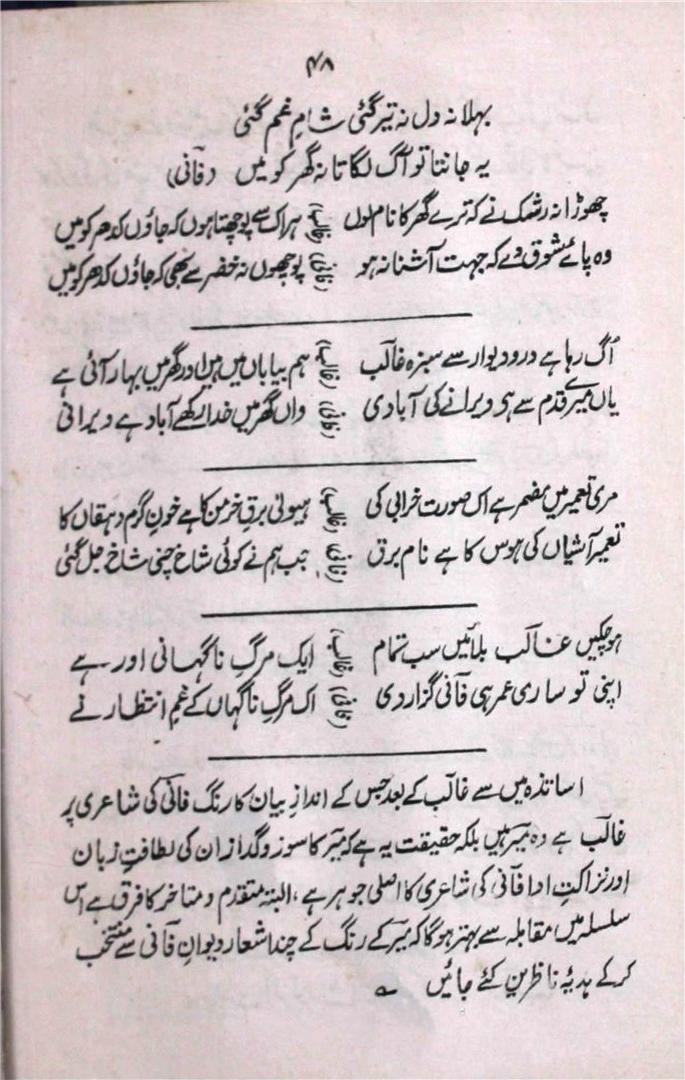 ۴۸
بہلا نہ دل نہ تیرگئی شامِ غم گئی
یہ جانتا تو آگ لگاتا نہ گھر کو میں (فانی)
چھوڑا نہ رشک نے کہ ترے گھر کا نام لوں (غالب) ہر اک سے پوچھتا ہوں کہ جاؤں کدھر کو میں
وہ پائے شوق دے کہ جہت آشنا نہ ہو (فانی) پوچھوں نہ خضر سے بھی کہ جاؤں کدھر کو میں
اُگ رہا ہے در و دیوار سے سبزہ غالب (غالب) ہم بیاباں میں ہیں اور گھر میں بہار آئی ہے
یاں میرے قدم سے ہی ویرانے کی آبادی (فانی) واں گھر میں خدا رکھے آباد ہے ویرانی
مری تعمیر میں مضمر ہے اک صورت خرابی کی (غالب) ہیولیٰ برقِ خرمن کا ہے خونِ گرم دہقاں کا
تعمیرِ آشیاں کی ہوس کا ہے نام برق (فانی) جب ہم نے کوئی شاخ چنی شاخ جل گئی
ہو چکیں غالب بلائیں سب تمام (غالب) ایک مرگِ ناگہانی اور ہے
اپنی تو ساری عمر ہی فانی گزار دی (فانی) اک مرگِ ناگہاں کے غمِ انتظار نے
اساتذہ میں سے غالب کے بعد جس کے اندازِ بیان کا رنگ فانی کی شاعری پر
غالب ہے وہ میر ہیں بلکہ حقیقت یہ ہے کہ میر کا سوز و گداز ان کی لطافتِ زبان
اور نزاکتِ ادا فانی کی شاعری کا اصلی جوہر ہے، البتہ متقدم و متاخر کا فرق ہے اس
سلسلہ میں مقابلہ سے بہتر ہوگا کہ میر کے رنگ کے چند اشعار دیوانِ فانی سے منتخب
کر کے ہدیۂ ناظرین کئے جائیں ؎